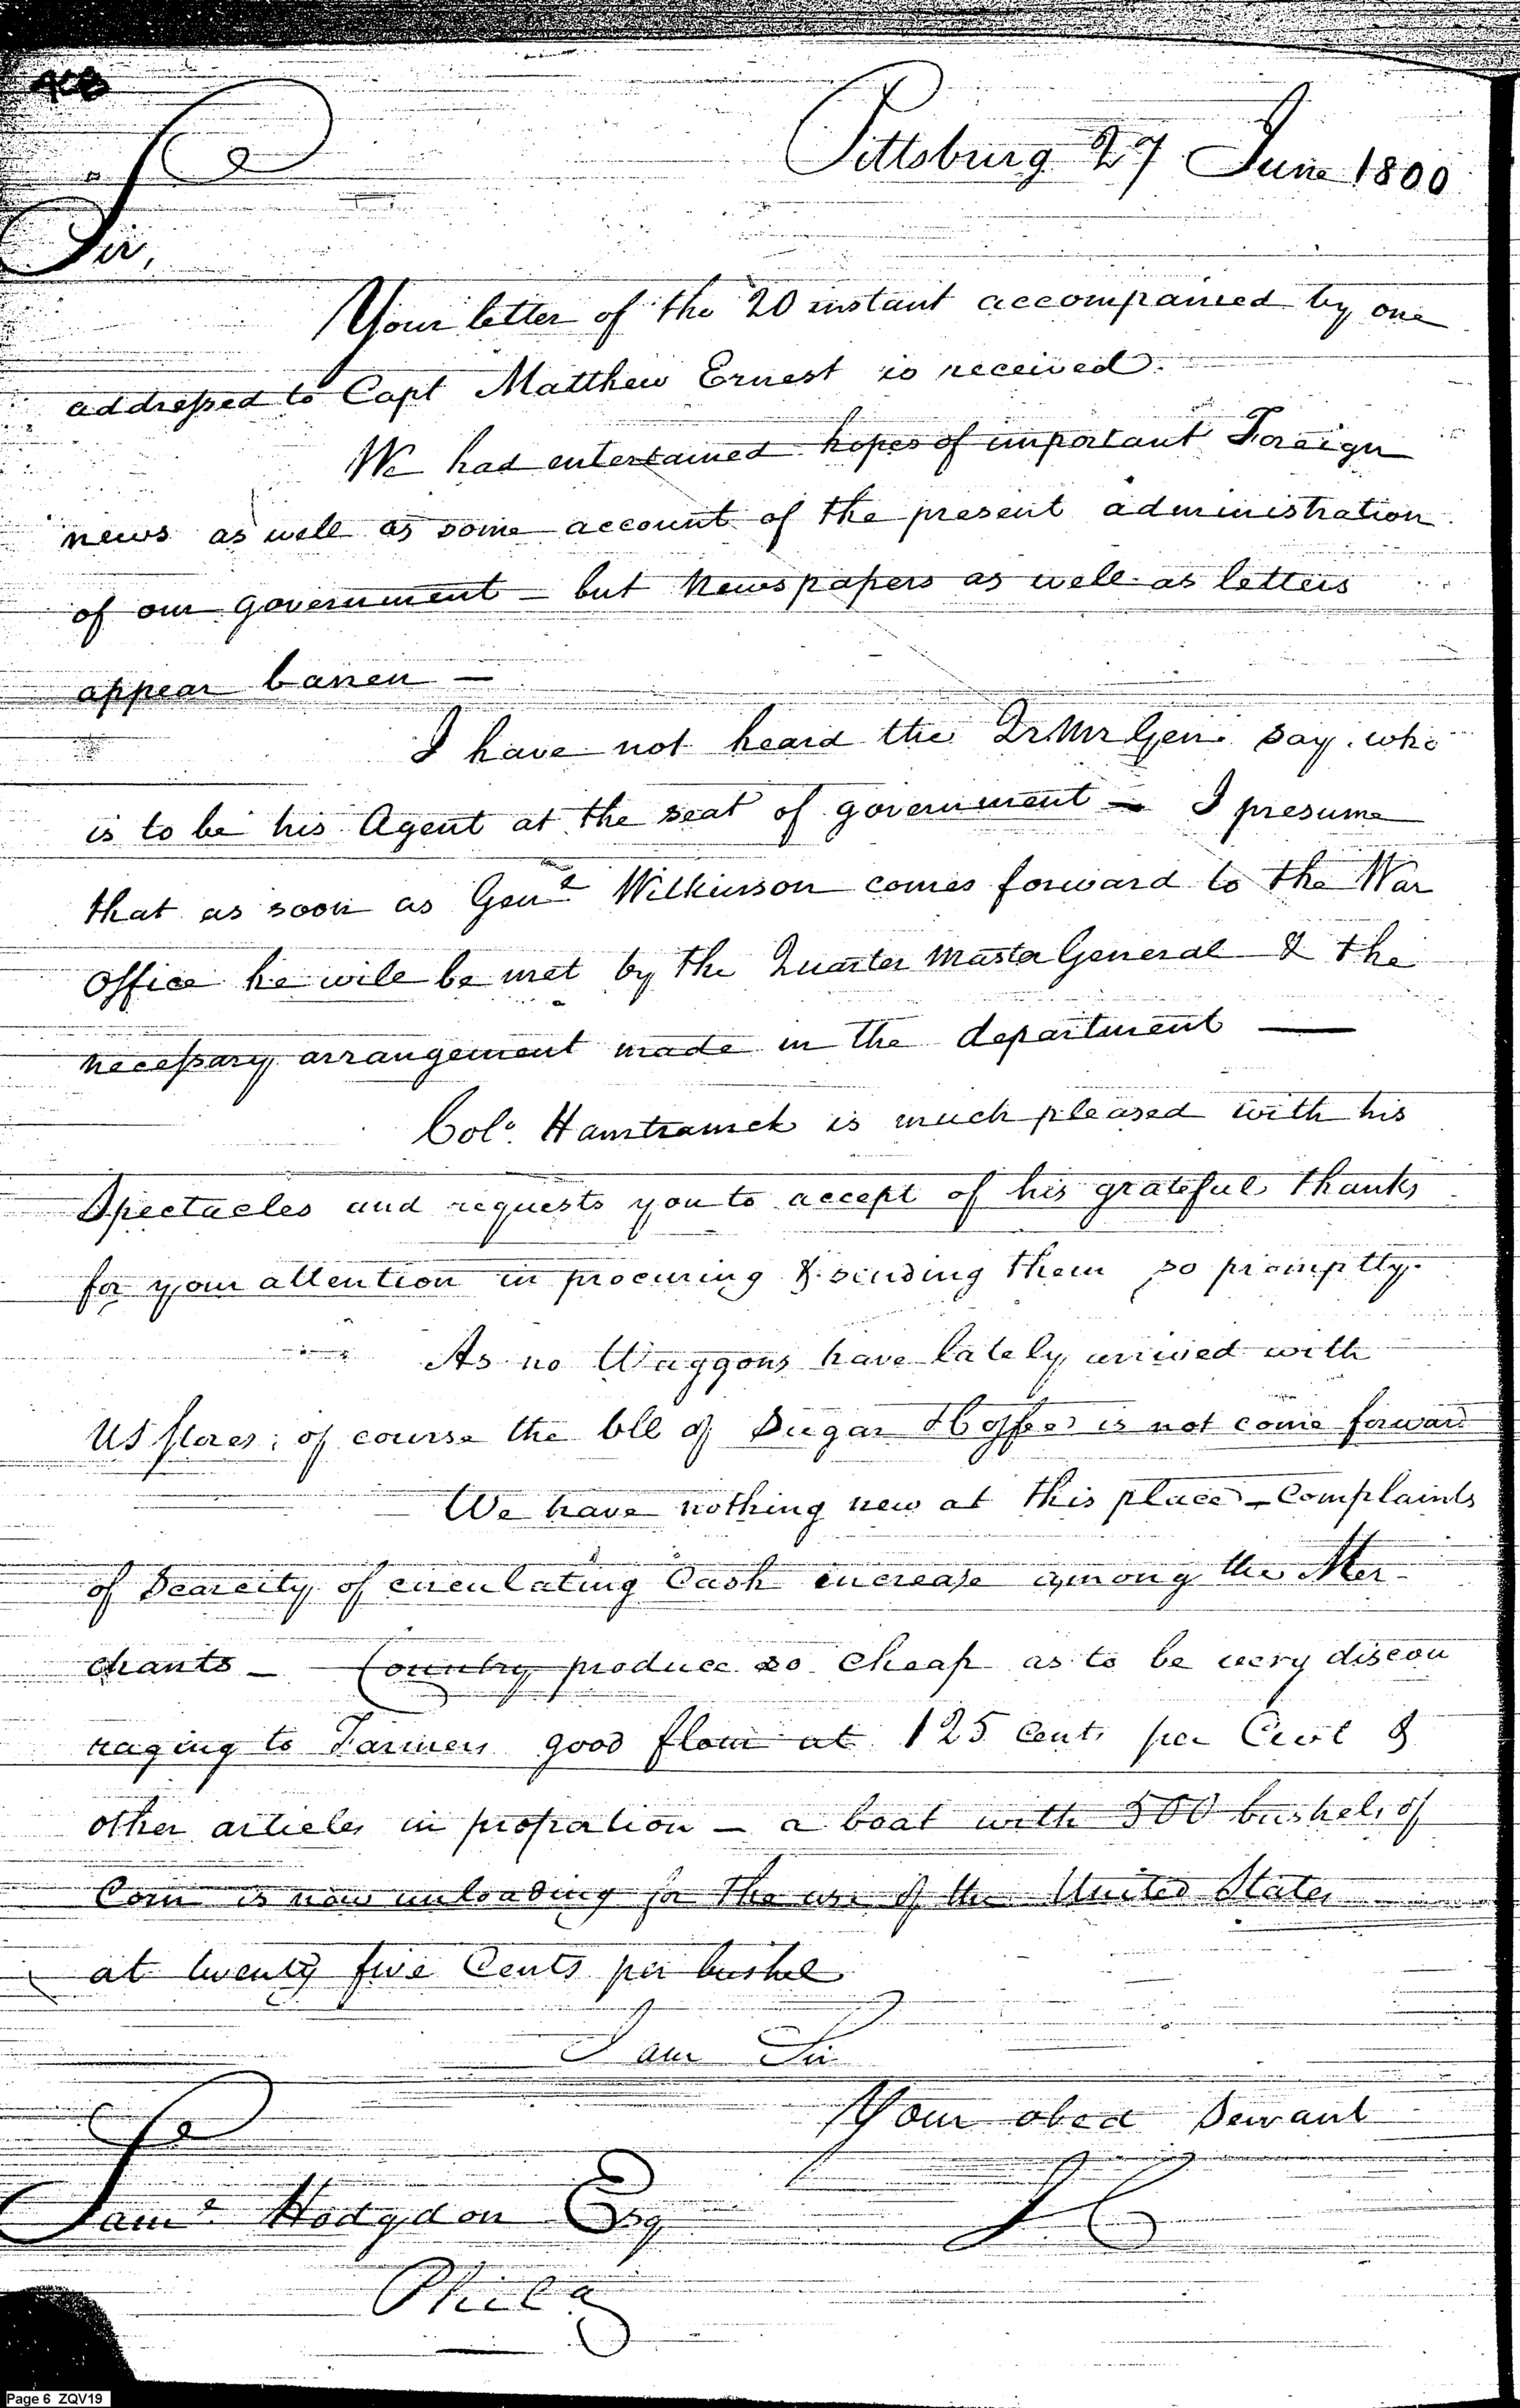 408
Pittsburg 27 June 1800
Sir,
Your letter of the 20 instant accompanied by one
addressed to Capt Matthew Ernest is received.
We had entertained hopes of important Foreign
news as well as some account of the present administration
of our government – but Newspapers as well as letters
appear barren –
I have not heard the Qr Mr Gen. say who
is to be his Agent at the seat of government – I presume
that as soon as Genl Wilkinson comes forward to the War
office he will be met by the Quarter Master General & the
necessary arrangement made in the department —
Colo. Hamtramck is much pleased with his
Spectacles and requests you to accept of his grateful thanks
for your attention in procuring & sending them so promptly.
As no Waggons have lately arrived with
US stores; of course the bll of Sugar & Coffee is not come forward
We have nothing new at this place – Complaints
of Scarcity of circulating Cash increase among the Mer-
chants – Country produce so cheap as to be very discou
raging to Farmers good flour at 125 Cents per Cwt &
other articles in proportion – a boat with 500 bushels of
Corn is now unloading for the use of the United States
at twenty five Cents per bushel
I am Sir
Your obed Servant
Saml Hodgdon Esq
Phila
Page 6 ZQV19